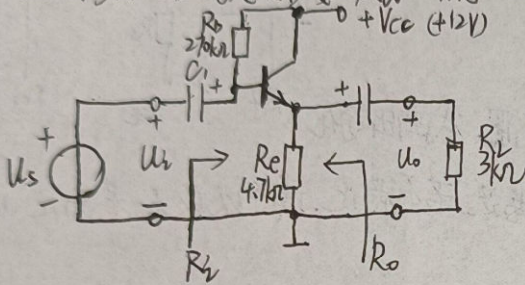 Rb
270kΩ
+Vcc (+12V)
C1
+
+
+
+
+
Us
Ui
Re
4.7kΩ
Uo
RL
3kΩ
-
-
-
Ri
Ro